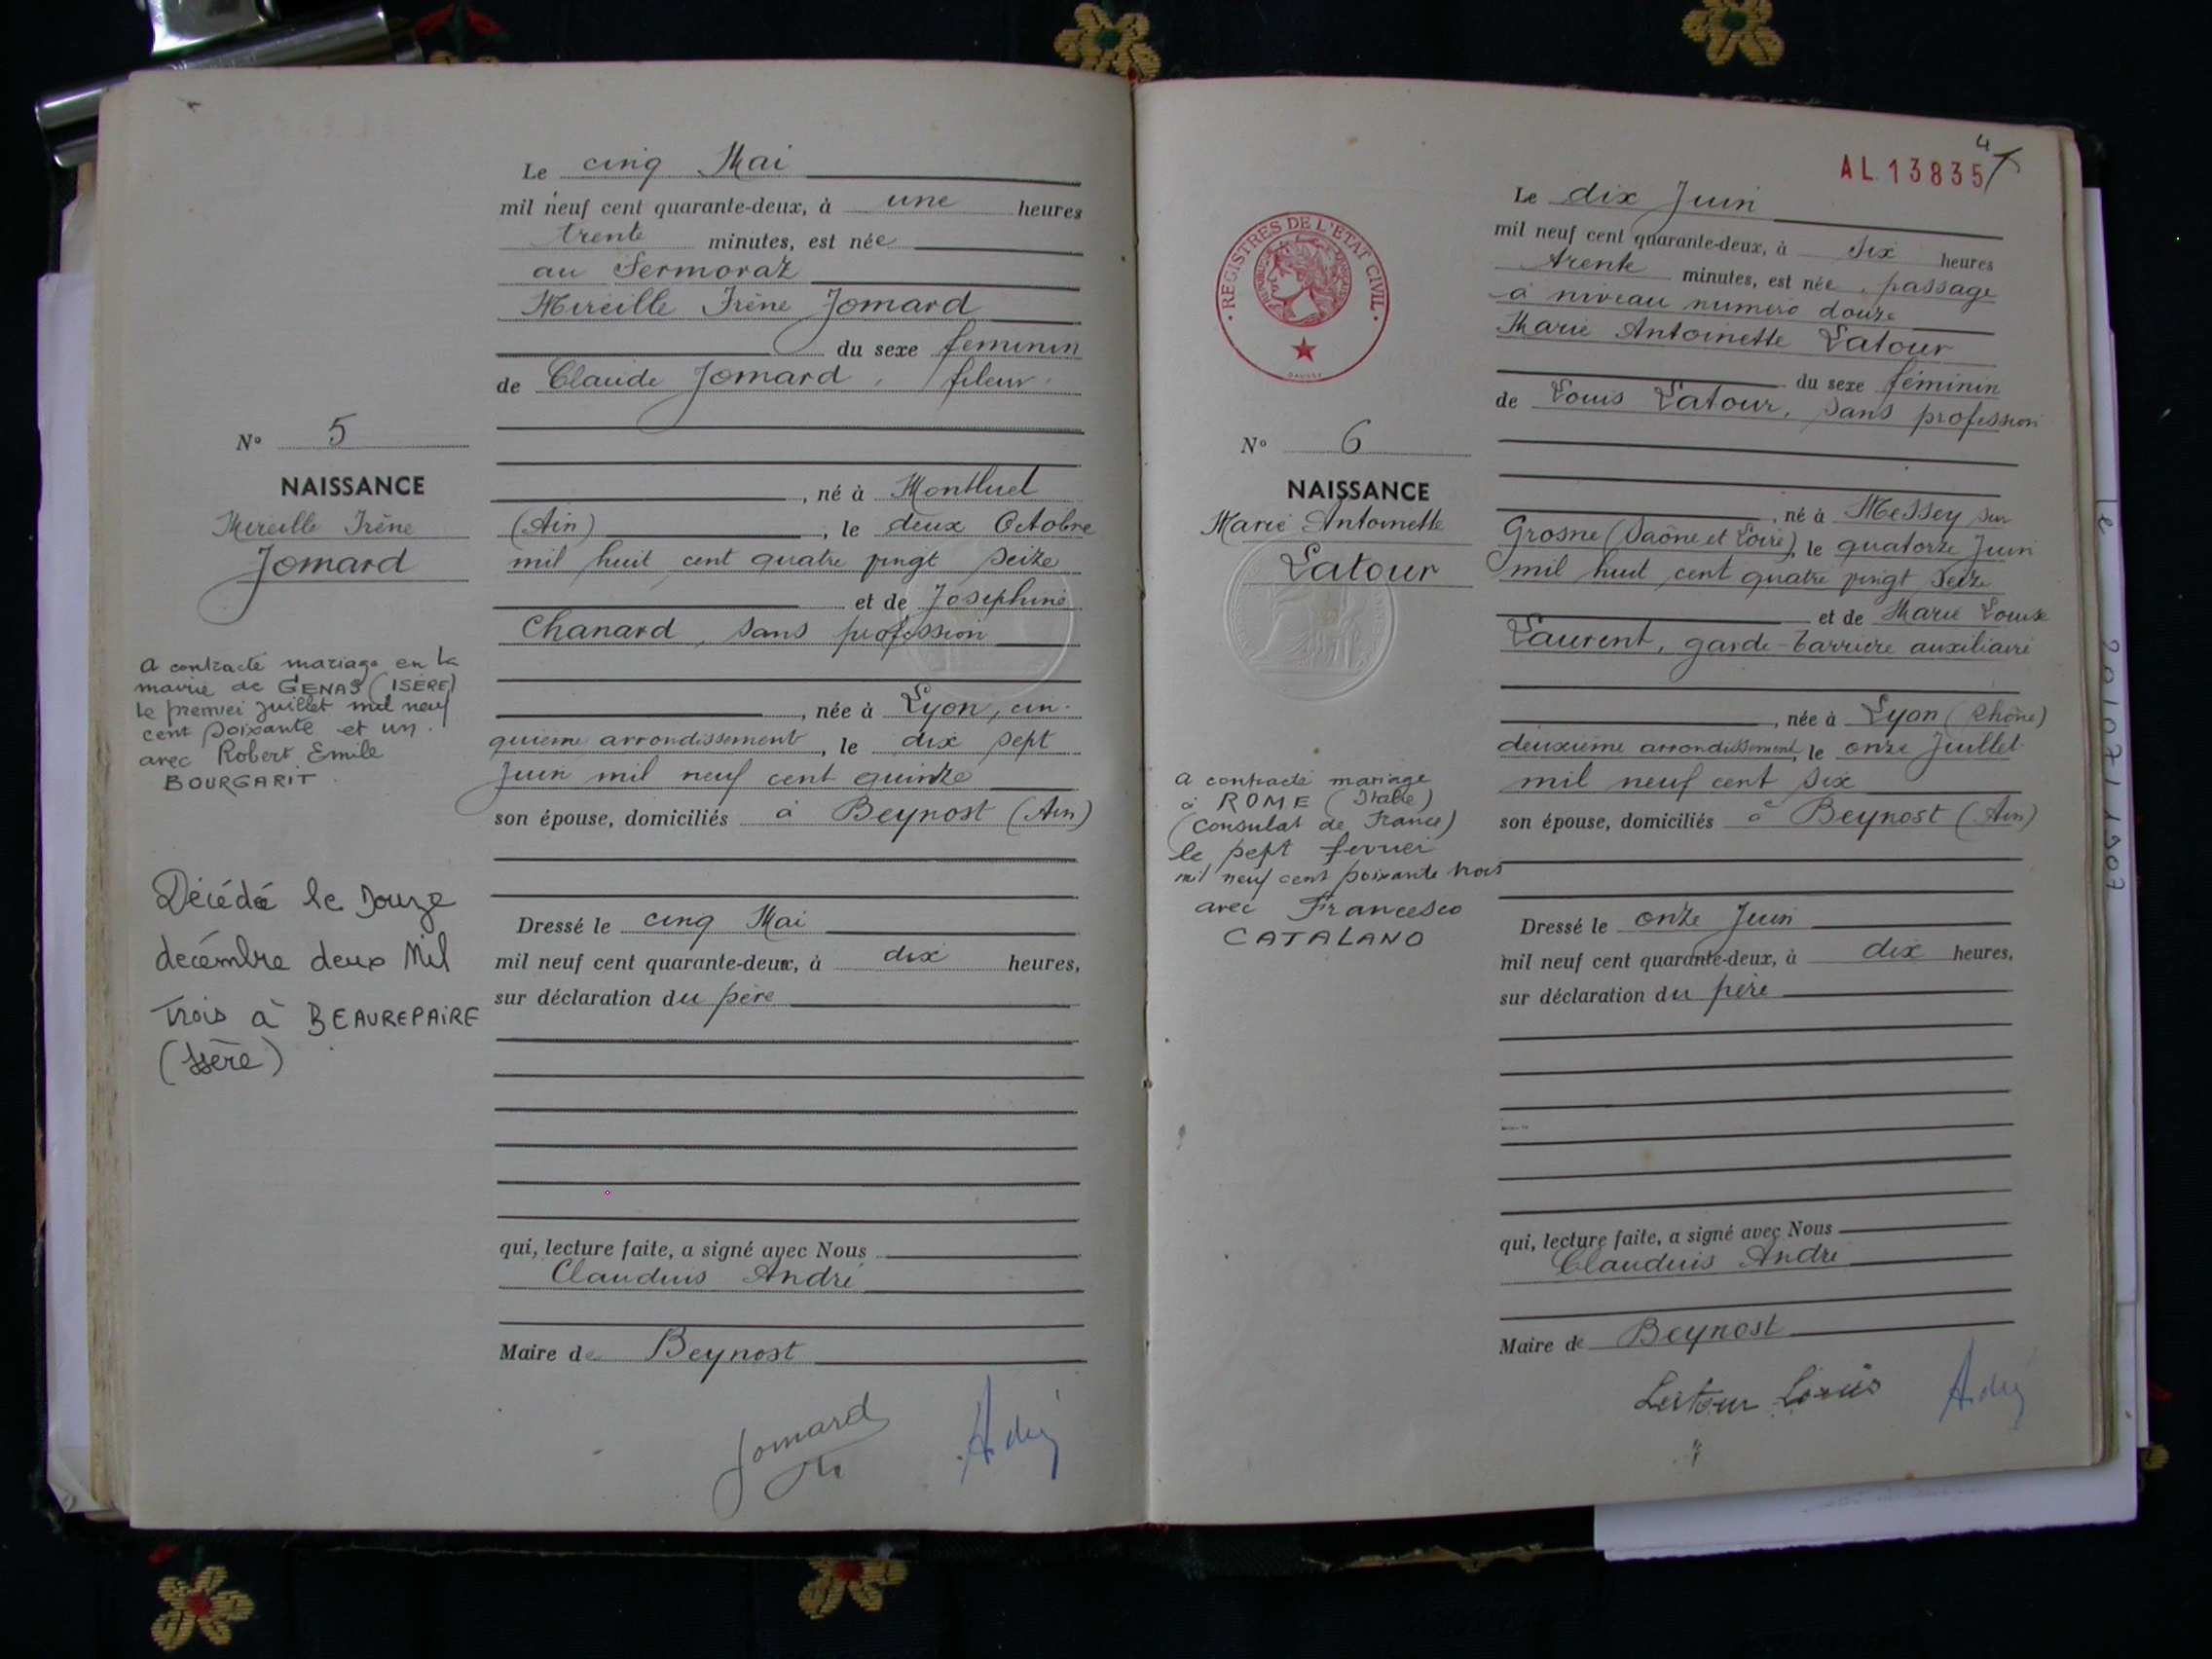 Le cinq Mai
mil neuf cent quarante-deux, à une heures
trente minutes, est née
au Sermoraz
Mireille Irène Jomard
du sexe féminin
de Claude Jomard, fileur
N° 5
NAISSANCE
Mireille Irène
Jomard
, né à Montluel
(Ain) , le deux Octobre
mil huit cent quatre vingt seize
et de Joséphine
Chanard, sans profession
, née à Lyon, cin-
quième arrondissement, le dix sept
Juin mil neuf cent quinze
son épouse, domiciliés à Beynost (Ain)
a contracté mariage en la
mairie de GENAS (ISÈRE)
le premier juillet mil neuf
cent soixante et un
avec Robert Emile
BOURGARIT.
Décédée le Douze
décembre deux Mil
Trois à BEAUREPAIRE
(Isère)
Dressé le cinq Mai
mil neuf cent quarante-deux, à dix heures,
sur déclaration du père
qui, lecture faite, a signé avec Nous
Claudius André
Maire de Beynost
Jomard
André
4
AL 13835
Le dix Juin
mil neuf cent quarante-deux, à six heures
trente minutes, est née, passage
à niveau numéro douze
Marie Antoinette Latour
du sexe féminin
de Louis Latour, sans profession
REGISTRES DE L'ÉTAT CIVIL
N° 6
NAISSANCE
Marie Antoinette
Latour
, né à Messey sur
Grosne (Saône et Loire), le quatorze Juin
mil huit cent quatre vingt seize
et de Marie Louise
Laurent, garde-barrière auxiliaire
, née à Lyon (Rhône)
deuxième arrondissement, le onze Juillet
mil neuf cent six
son épouse, domiciliés à Beynost (Ain)
a contracté mariage
à ROME (Italie)
(Consulat de France)
le sept février
mil neuf cent soixante trois
avec Francesco
CATALANO
Dressé le onze Juin
mil neuf cent quarante-deux, à dix heures,
sur déclaration du père
qui, lecture faite, a signé avec Nous
Claudius André
Maire de Beynost
Latour Louis
André